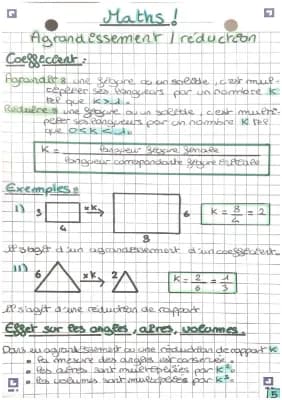 Maths !
Agrandissement / réduction
Coefficient :
Agrandir : une figure ou un solide, c'est mul-
tiplier ses longueurs par un nombre K
tel que K > 1.
Réduire : une figure ou un solide, c'est multi-
plier ses longueurs par un nombre K tel
que 0 < K < 1.
K = longueur figure finale
longueur correspondante figure initiale
Exemples :
I) 3 4 xK 6 8 K = 8/4 = 2
Il s'agit d'un agrandissement d'un coefficient.
II) 6 xK 2 K = 2/6 = 1/3
Il s'agit d'une réduction de rapport
Effet sur les angles, aires, volumes.
Dans un agrandissement ou une réduction de rapport K
• la mesure des angles est conservée.
• les aires sont multipliées par K².
• les volumes sont multipliés par K³.
5